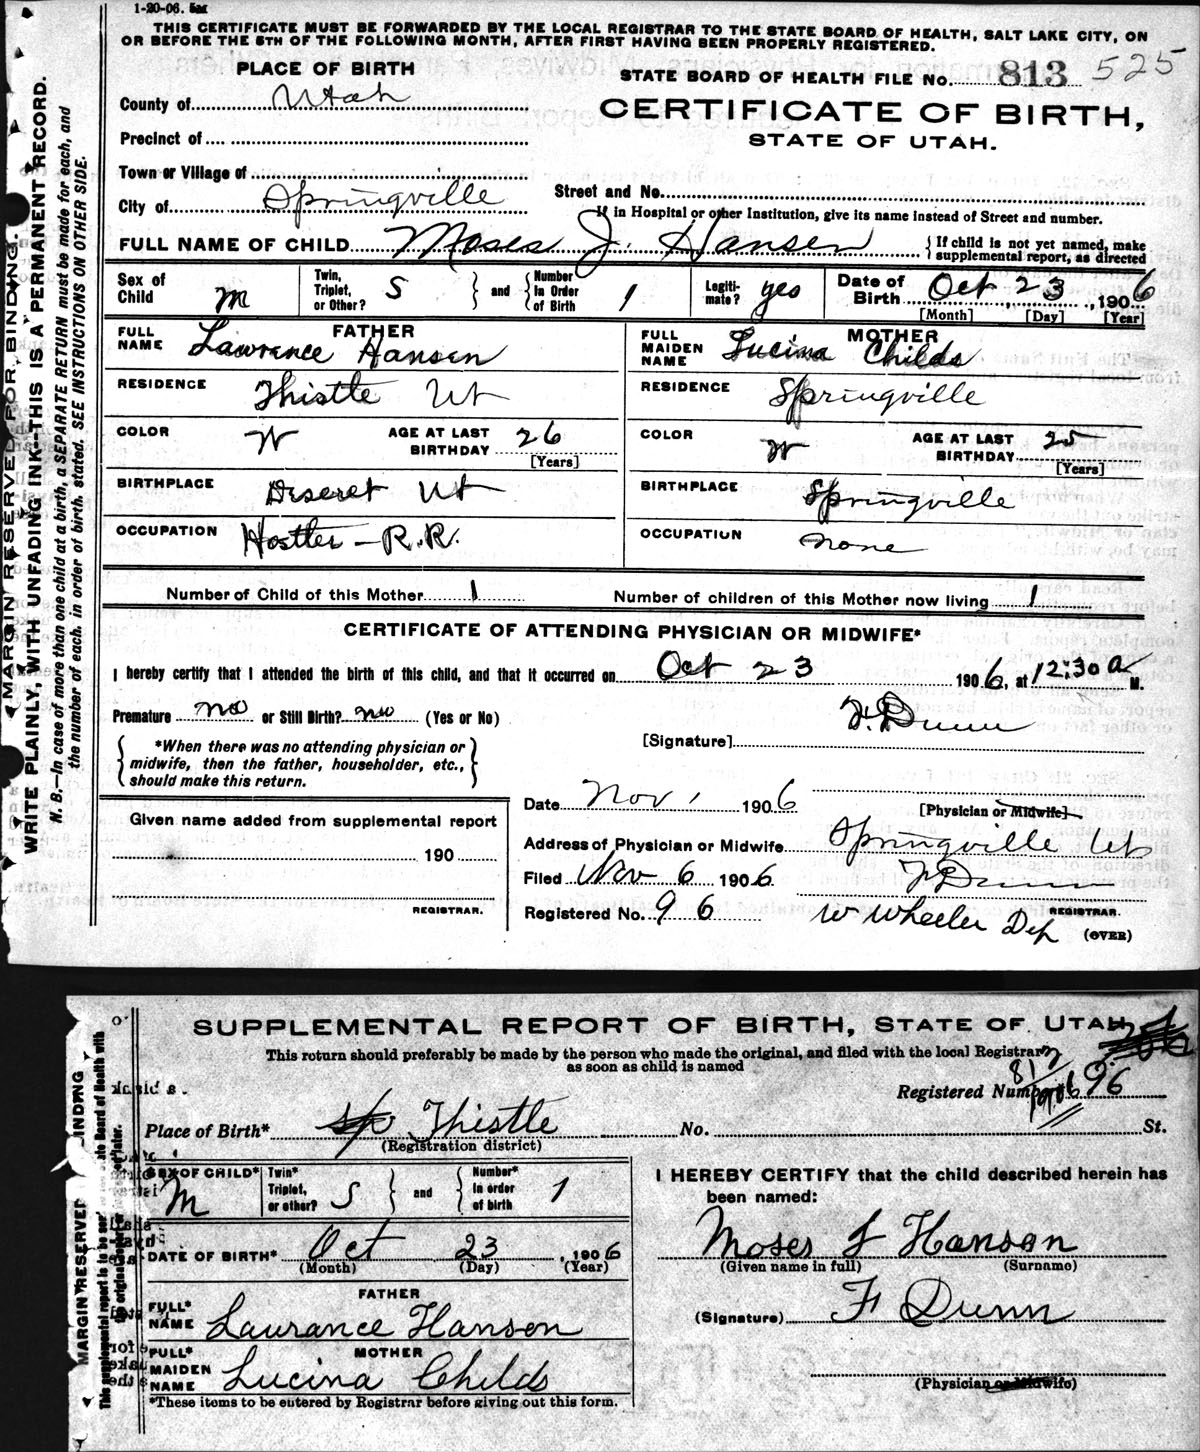 1-20-06. 5m
THIS CERTIFICATE MUST BE FORWARDED BY THE LOCAL REGISTRAR TO THE STATE BOARD OF HEALTH, SALT LAKE CITY, ON
OR BEFORE THE 5TH OF THE FOLLOWING MONTH, AFTER FIRST HAVING BEEN PROPERLY REGISTERED.
PLACE OF BIRTH
STATE BOARD OF HEALTH FILE No. 813 525
County of Utah
CERTIFICATE OF BIRTH,
Precinct of
STATE OF UTAH.
Town or Village of
Street and No.
City of Springville
If in Hospital or other Institution, give its name instead of Street and number.
FULL NAME OF CHILD Moses J. Hansen { If child is not yet named, make
supplemental report, as directed
Sex of Child M Twin, Triplet, or Other? S } and { Number In Order of Birth 1 Legiti-mate? yes Date of Birth Oct 23, 1906
[Month] [Day] [Year]
FATHER
FULL NAME Lawrance Hansen
RESIDENCE Thistle Ut
COLOR W AGE AT LAST BIRTHDAY 26
[Years]
BIRTHPLACE Deseret Ut
OCCUPATION Hostler - R.R.
MOTHER
FULL MAIDEN NAME Lucina Childs
RESIDENCE Springville
COLOR W AGE AT LAST BIRTHDAY 25
[Years]
BIRTHPLACE Springville
OCCUPATION none
Number of Child of this Mother 1 Number of children of this Mother now living 1
CERTIFICATE OF ATTENDING PHYSICIAN OR MIDWIFE*
I hereby certify that I attended the birth of this child, and that it occurred on Oct 23 1906, at 12:30 a M.
Premature no or Still Birth? no (Yes or No)
[Signature] F. Dunn
{ *When there was no attending physician or
midwife, then the father, householder, etc.,
should make this return. }
Date Nov 1 1906 [Physician or Midwife]
Given name added from supplemental report
190
REGISTRAR.
Address of Physician or Midwife Springville Ut
Filed Nov 6 1906 F Dunn
REGISTRAR.
Registered No. 96 W Wheeler Dep (OVER)
MARGIN RESERVED FOR BINDING.
WRITE PLAINLY, WITH UNFADING INK--THIS IS A PERMANENT RECORD.
N. B.—In case of more than one child at a birth, a SEPARATE RETURN must be made for each, and
the number of each, in order of birth, stated. SEE INSTRUCTIONS ON OTHER SIDE.
SUPPLEMENTAL REPORT OF BIRTH, STATE OF UTAH
This return should preferably be made by the person who made the original, and filed with the local Registrar
as soon as child is named
Registered Number 96
Place of Birth* Thistle No. St.
(Registration district)
SEX OF CHILD* M Twin* Triplet, or other? S } and { Number* In order of birth 1
DATE OF BIRTH* Oct 23, 1906
(Month) (Day) (Year)
FATHER
FULL* NAME Laurance Hanson
MOTHER
FULL* MAIDEN NAME Lucina Childs
*These items to be entered by Registrar before giving out this form.
I HEREBY CERTIFY that the child described herein has
been named:
Moses J Hanson
(Given name in full) (Surname)
(Signature) F Dunn
(Physician or Midwife)
MARGIN RESERVED